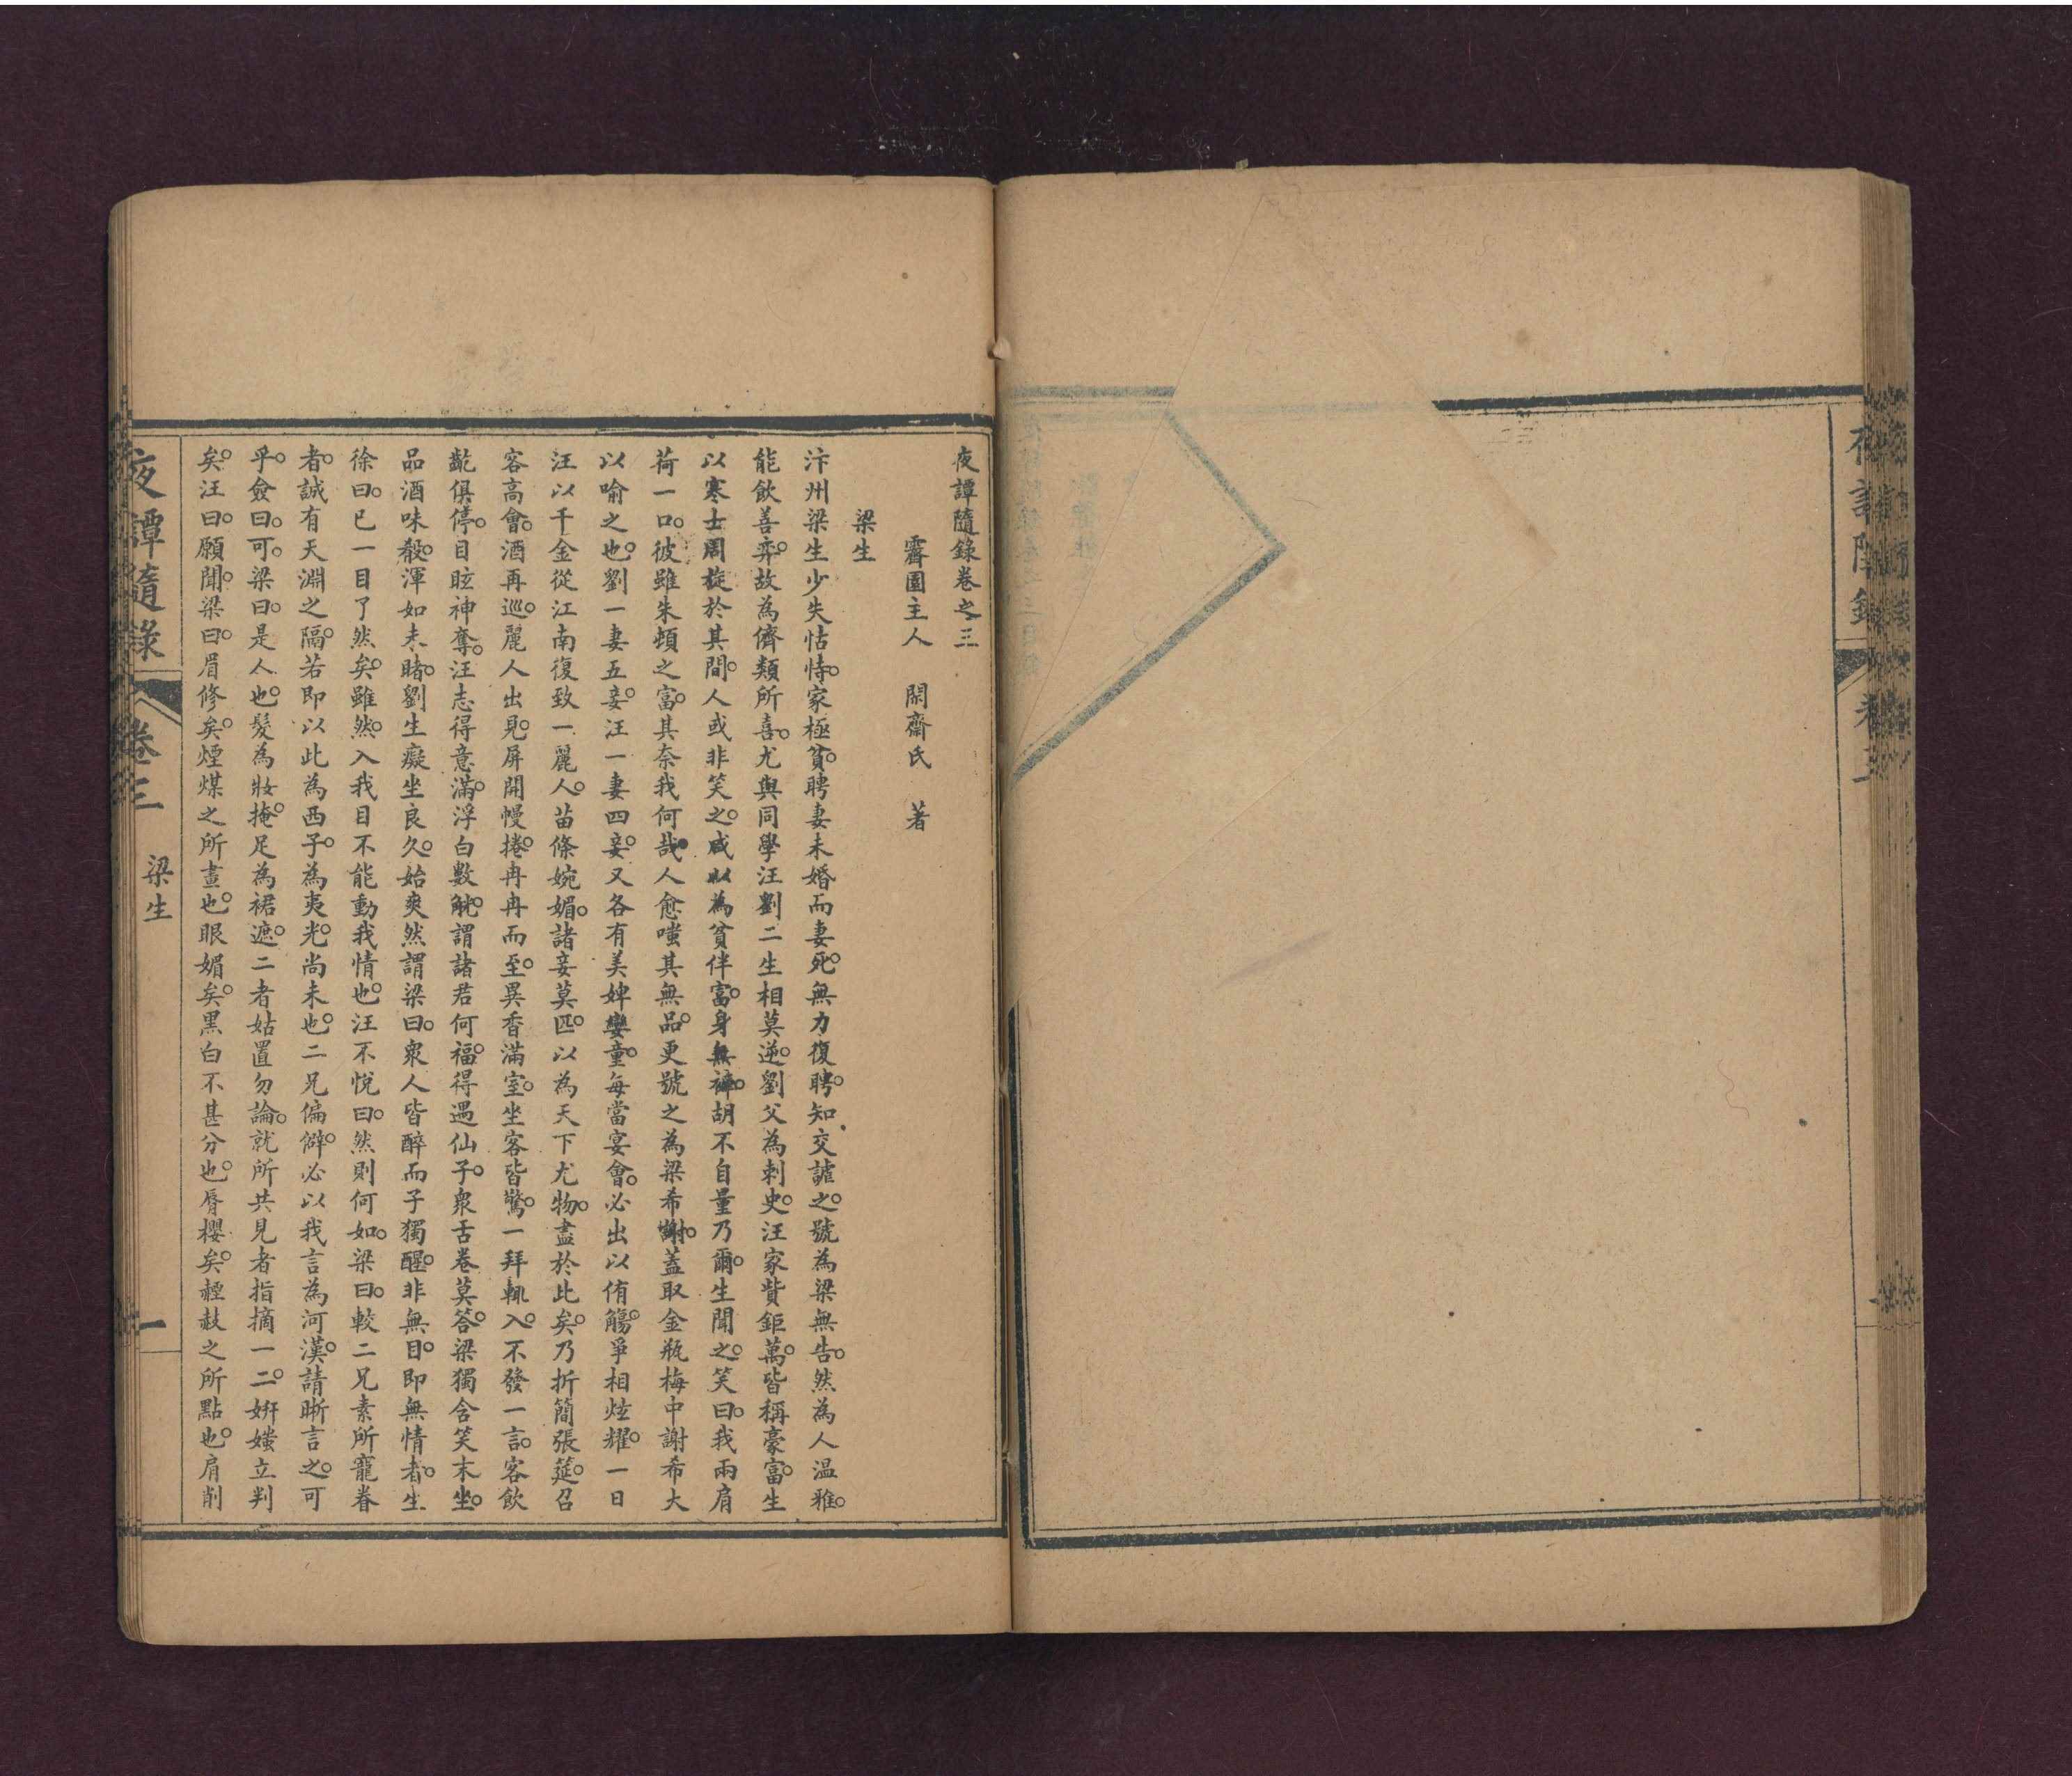 夜譚隨錄卷之三
霽園主人　閑齋氏　著
梁生
汴州梁生少失怙恃。家極貧。聘妻未婚而妻死。無力復聘。知交謔之。號為梁無告。然為人温雅。
能飲善弈。故為儕類所喜。尤與同學汪劉二生相莫逆。劉父為刺史。汪家貲鉅萬。皆稱豪富。生
以寒士周旋於其間。人或非笑之。咸以為貧伴富。身無褲。胡不自量乃爾。生聞之。笑曰。我兩肩
荷一口。彼雖朱頓之富。其奈我何哉。人愈嗤其無品。更號之為梁希謝。蓋取金瓶梅中謝希大
以喻之也。劉一妻五妾。汪一妻四妾。又各有美婢孌童。每當宴會。必出以侑觴。爭相炫耀。一日
汪以千金從江南復致一麗人。苗條婉媚。諸妾莫匹。以為天下尤物。盡於此矣。乃折簡張筵。召
客高會。酒再巡。麗人出見。屏開幔捲。冉冉而至。異香滿室。坐客皆驚。一拜輒入。不發一言。客飲
齔俱停。目眩神奪。汪志得意滿。浮白數觥。謂諸君何福。得遇仙子。衆舌卷莫答。梁獨含笑末坐。
品酒味殽。渾如未睹。劉生癡坐良久。始爽然謂梁曰。衆人皆醉而子獨醒。非無目。即無情者。生
徐曰。已一目了然矣。雖然。入我目不能動我情也。汪不悅曰。然則何如。梁曰。較二兄素所寵眷
者。誠有天淵之隔。若即以此為西子。為夷光。尚未也。二兄偏僻。必以我言為河漢。請晰言之。可
乎。僉曰。可。梁曰。是人也。髮為妝掩。足為裙遮。二者姑置勿論。就所共見者指摘一二。妍媸立判
矣。汪曰。願聞。梁曰。眉修矣。煙煤之所畫也。眼媚矣。黑白不甚分也。脣櫻矣。䞓𧹞之所點也。肩削
夜譚隨錄　卷三　梁生　一